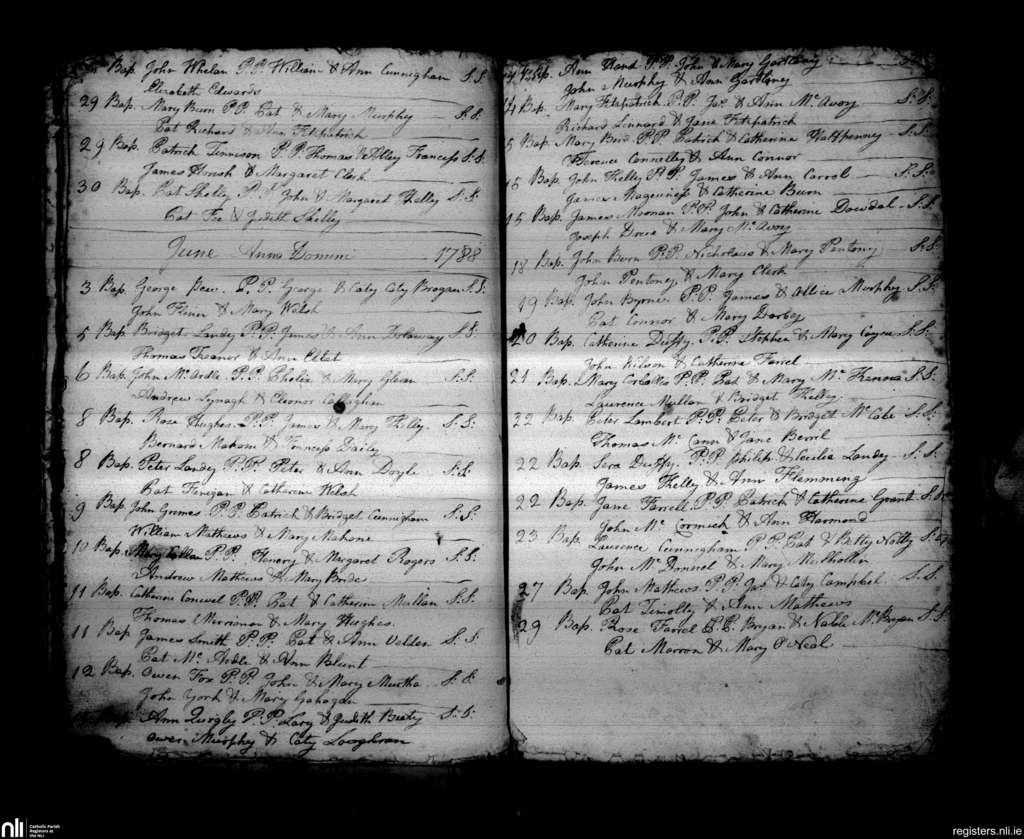 Bap. John Whelan P.P. William & Ann Cunnigham S.S.
Elizabeth Edwards
29 Bap. Mary Burn P.P. Pat & Mary Murphy S.S.
Pat Richard & Ann Fitzpatrick
29 Bap. Patrick Tennison P.P. Thomas & Alley Francess S.S.
James & Margaret Clark
30 Bap. Pat Shelly P.P. John & Margaret Kelly S.S.
Pat & Judith Shelly
June Anno Domini 1788
3 Bap. George P.P. George & Caty Caty Brogan S.S.
John Flinn & Mary Welsh
5 Bap. Bridget Landy P.P. James & Ann S.S.
Thomas Treanor & Ann
6 Bap. John Mc Ardle P.P. & Mary S.S.
Andrew Lynagh & Eleonor Callaghan
8 Bap. Rose Hughes P.P. James & Mary Kelly S.S.
Bernard & Francess Dailey
8 Bap. Peter Landey P.P. Peter & Ann Doyle S.S.
Pat Finegan & Catharine Welsh
9 Bap. John Grimes P.P. Patrick & Bridget Cunnigham S.S.
William Mathews & Mary Mahone
10 Bap. Mary P.P. Henery & Margaret Rogers S.S.
Andrew Mathews & Mary Bride
11 Bap. Catherine P.P. Pat & Catherine Mullan S.S.
Thomas Merriman & Mary Hughes
11 Bap. James Smith P.P. Pat & Ann S.S.
Pat Mc Ardle & Ann Blunt
12 Bap. Owen Fox P.P. John & Mary Murtha S.S.
John York & Mary Gahagan
Ann Quigly P.P. Lary & Judith S.S.
Owen Murphy & Caty Loughran
Bap. Ann P.P. John & Mary Gartlany
John Murphy & Ann Gartlany
14 Bap. Mary Fitzpatrick P.P. Jas. & Ann Mc Avoy S.S.
Richard Linnard & Jane Fitzpatrick
Bap. Mary P.P. Patrick & Catherine Halfpenney S.S.
Florence Connelly & Ann Connor
15 Bap. John Kelly P.P. James & Ann Carrol S.S.
James Maguiness & Catherine Burn
15 Bap. James Noonan P.P. John & Catherine Dowdal S.S.
Joseph & Mary Mc Avoy
18 Bap. John Burn P.P. Nicholaus & Mary Pentony S.S.
John Pentoney & Mary Clerk
19 Bap. John Byrne P.P. James & Allice Murphy S.S.
Pat Connor & Mary Darbey
20 Bap. Catherine Duffy P.P. Stephen & Mary S.S.
John & Catherine Farrel
21 Bap. Mary P.P. Pat & Mary Mc S.S.
Laurence Mullan & Bridget Kelley
22 Bap. Peter Lambert P.P. Peter & Bridget Mc Cabe S.S.
Thomas Mc Cann & Jane
22 Bap. Sera Duffy P.P. Philip & Cecilia Landey S.S.
James Kelly & Ann Flemming
22 Bap. Jane Farrell P.P. Patrick & Catherine Grant S.S.
John Mc Cormick & Ann Hammond
23 Bap. Laurence Cunnigham P.P. Pat & Betty S.S.
John Mc & Mary
27 Bap. John Mathews P.P. Jas. & Caty Campbel S.S.
Pat & Ann Mathews
29 Bap. Rose Farrel P.P. Bryan & Mc Bryan S.S.
Pat Marron & Mary O Neal
nli Catholic Parish
Registers at
the NLI
registers.nli.ie